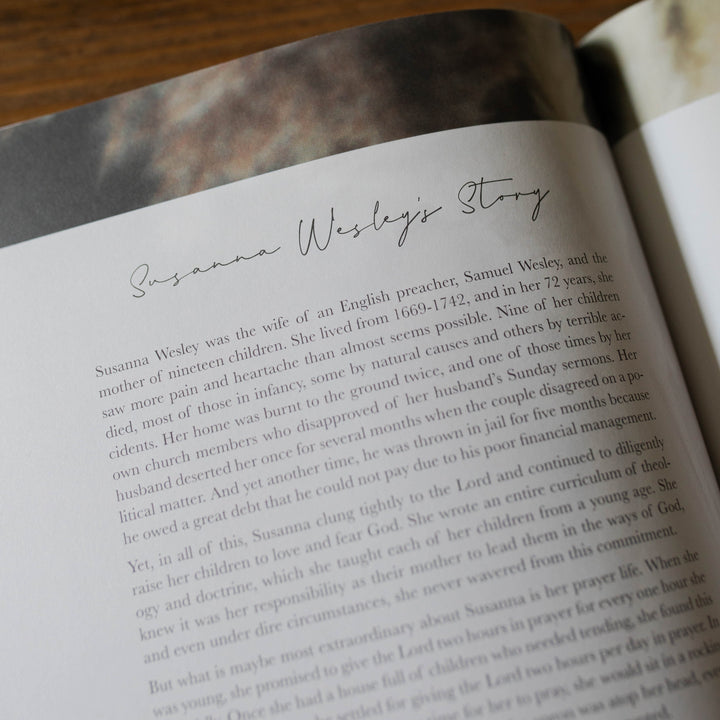 Susanna Wesley's Story
Susanna Wesley was the wife of an English preacher, Samuel Wesley, and the
mother of nineteen children. She lived from 1669-1742, and in her 72 years, she
saw more pain and heartache than almost seems possible. Nine of her children
died, most of those in infancy, some by natural causes and others by terrible ac-
cidents. Her home was burnt to the ground twice, and one of those times by her
own church members who disapproved of her husband's Sunday sermons. Her
husband deserted her once for several months when the couple disagreed on a po-
litical matter. And yet another time, he was thrown in jail for five months because
he owed a great debt that he could not pay due to his poor financial management.
Yet, in all of this, Susanna clung tightly to the Lord and continued to diligently
raise her children to love and fear God. She wrote an entire curriculum of theol-
ogy and doctrine, which she taught each of her children from a young age. She
knew it was her responsibility as their mother to lead them in the ways of God,
and even under dire circumstances, she never wavered from this commitment.
But what is maybe most extraordinary about Susanna is her prayer life. When she
was young, she promised to give the Lord two hours in prayer for every one hour she
Once she had a house full of children who needed tending, she found this
she settled for giving the Lord two hours per day in prayer. In
time for her to pray, she would sit in a
was atop her head,